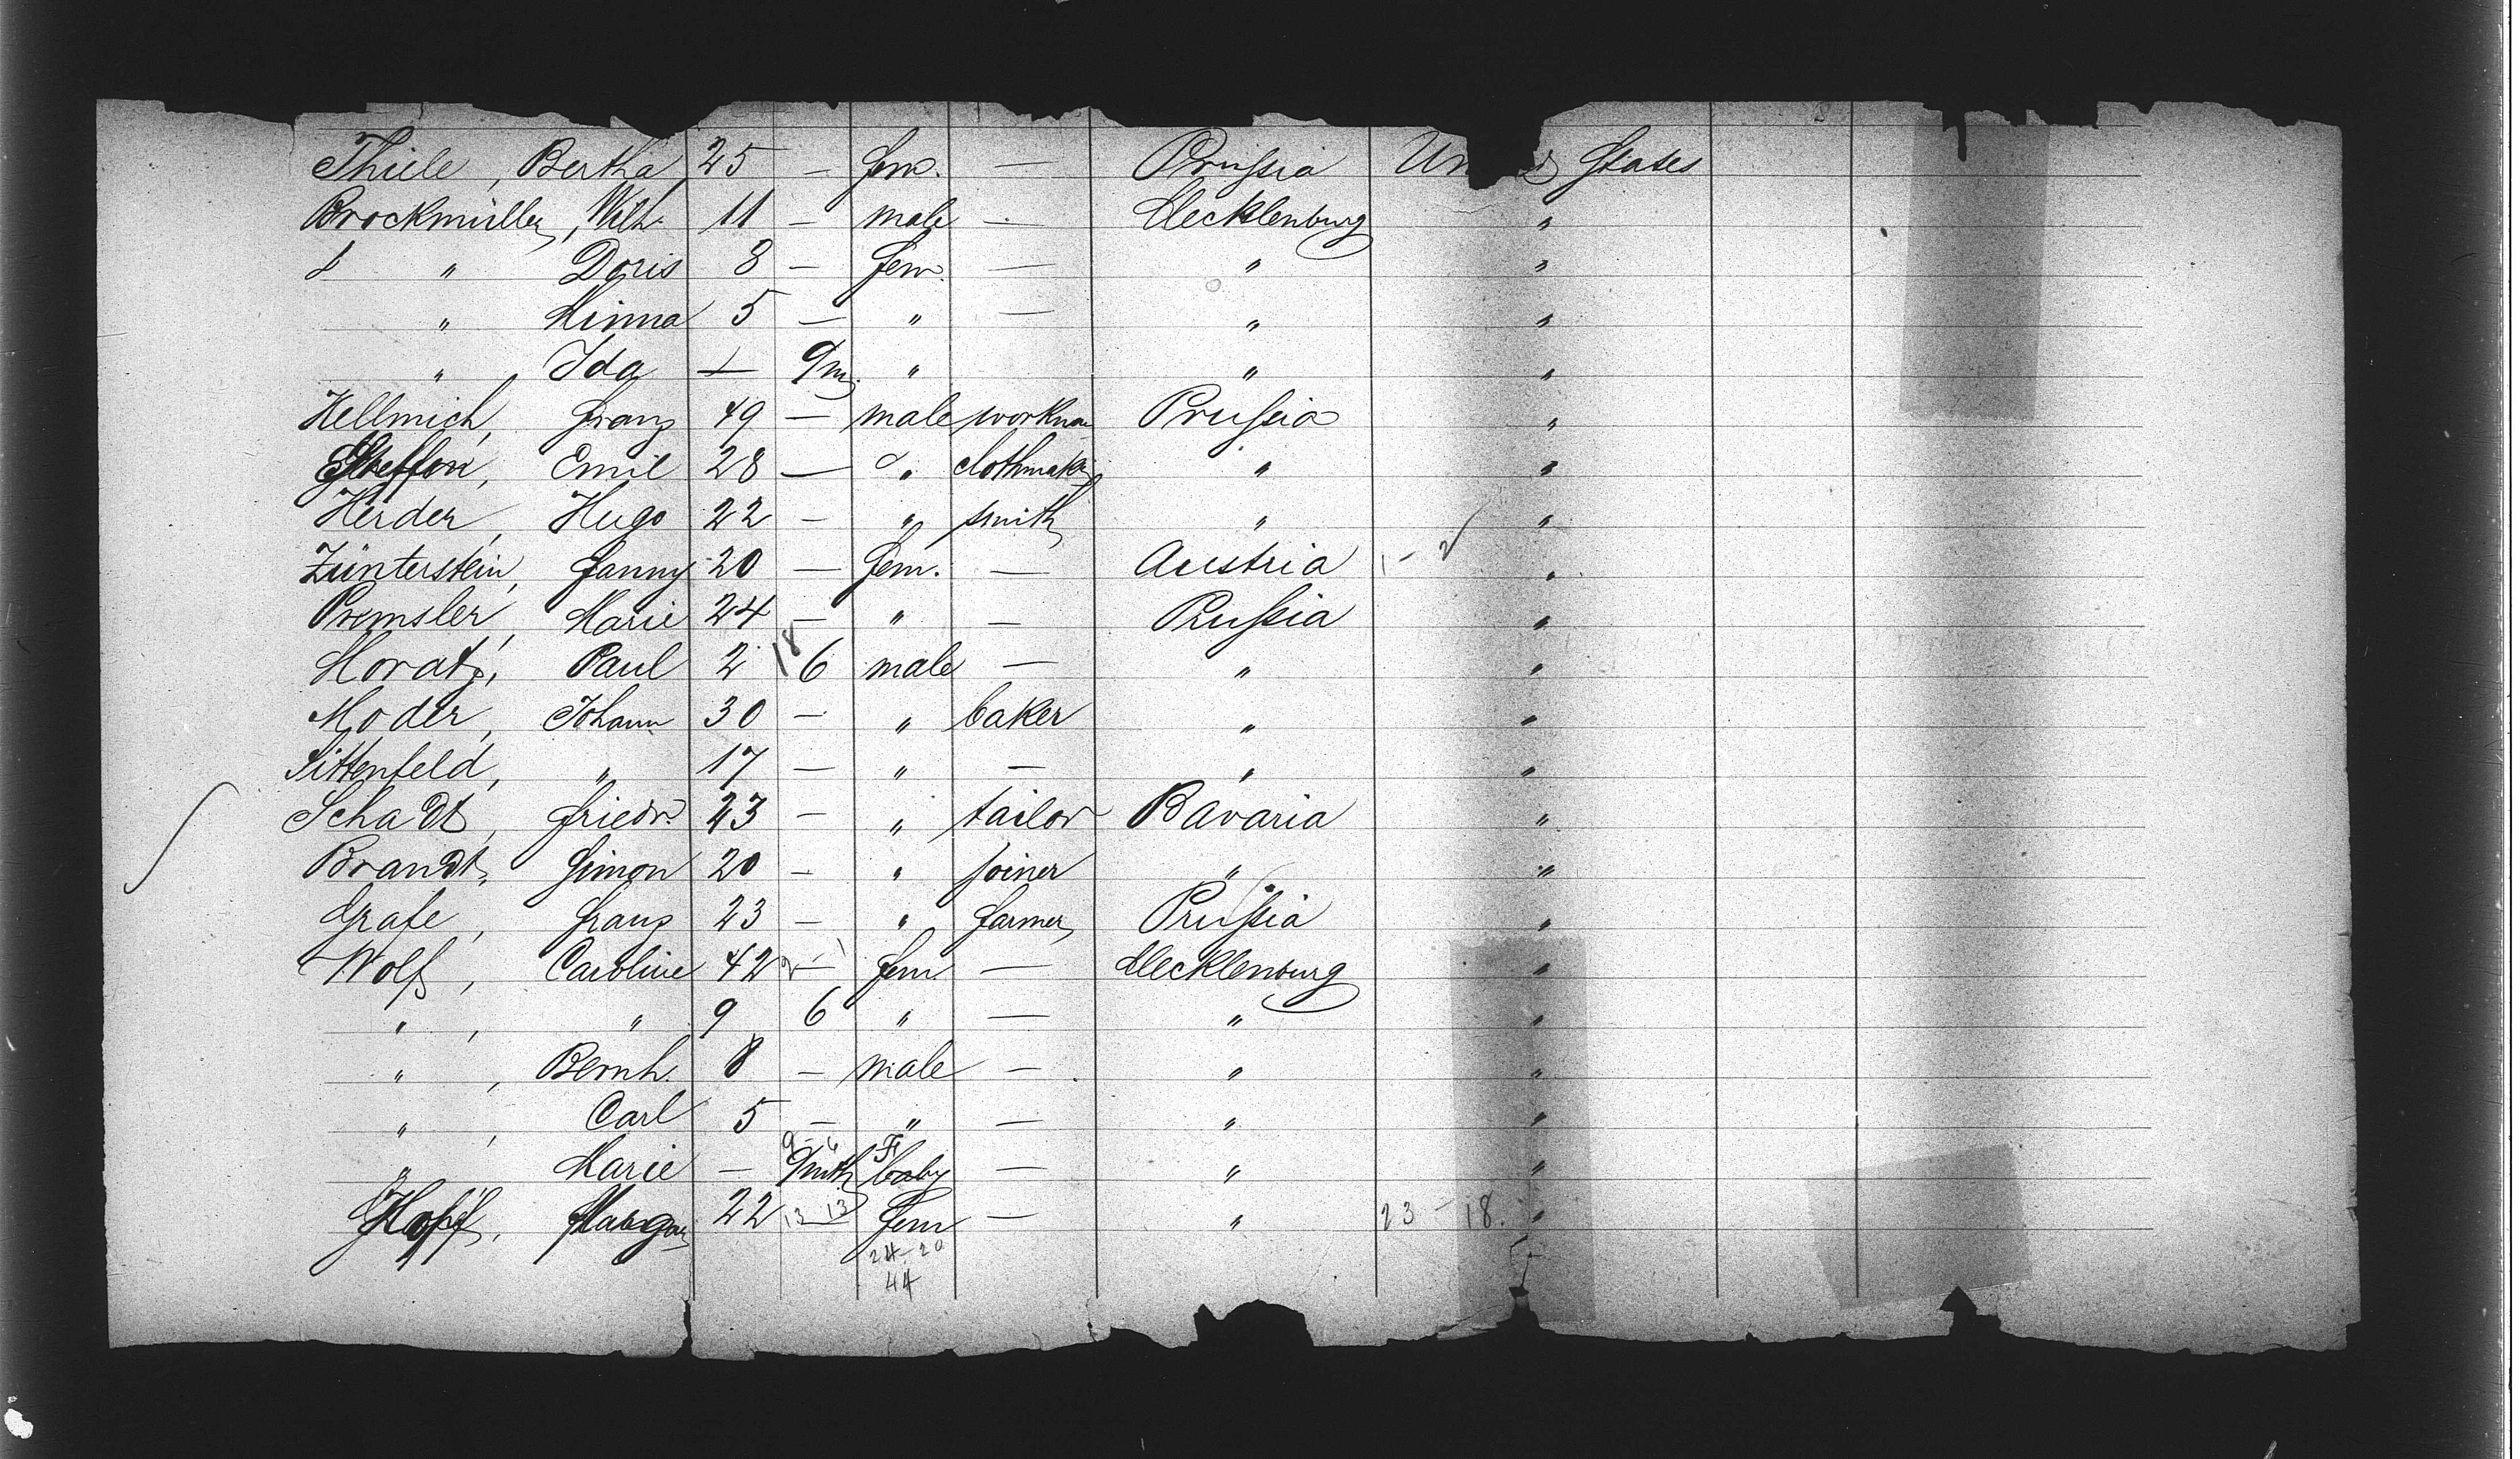 Thiele, Bertha 25 — fem. — Prussia United States
Brockmüller, Wilh. 11 — male — Mecklenburg "
" Doris 8 — fem. — " "
" Minna 5 — " — " "
" Ida — 9/m. " " "
Hellmich, Franz 49 — male workman Prussia "
Steffen, Emil 28 — " clothmaker " "
Herder, Hugo 22 — " smith " "
Zünterstein, Fanny 20 — fem. — Austria 1 - "
Premsler, Marie 24 — " — Prussia "
Moratz, Paul 2 18 6 male — " "
Moder, Johann 30 — " baker " "
Sittenfeld, " 17 — " — " "
Schadt, Friedr. 23 — " tailor Bavaria "
Brandt, Simon 20 — " joiner " "
Grafe, Franz 23 — " farmer Prussia "
Wolf, Caroline 42 — fem. — Mecklenburg "
", " 9 6 " — " "
", Bernh. 8 — male — " "
", Carl 5 — " — " "
9 - 6 F
" Marie — 9/mth baby — " "
Hopf, Margar 22 13 13 fem — " 23 - 18. "
24 - 20
44